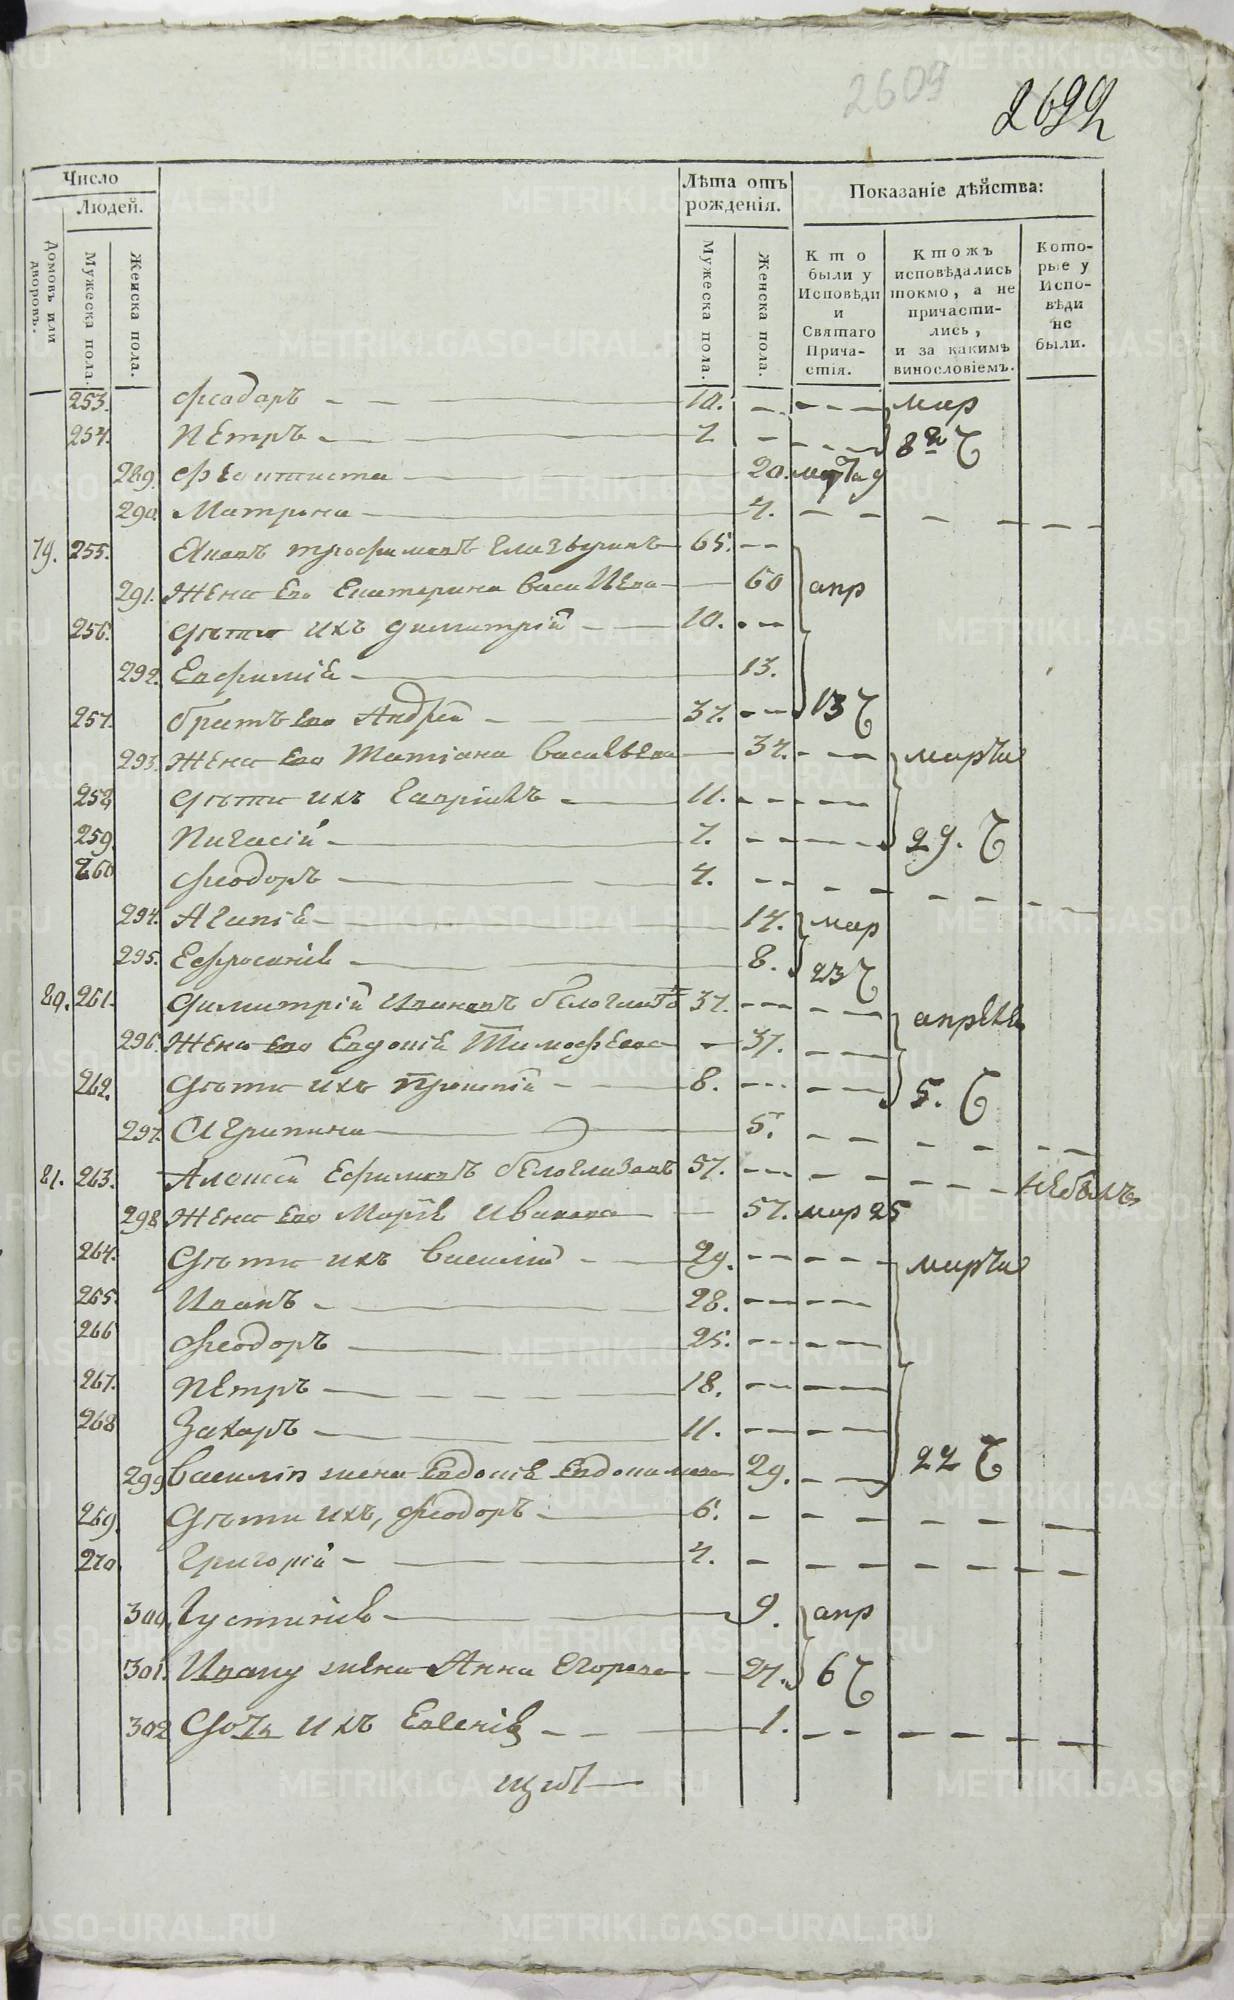 2609
2692
Число
Людей.
Лѣта отъ рожденія.
Показаніе дѣйства:
Домовъ или дворовъ.
Мужеска пола.
Женска пола.
Мужеска пола.
Женска пола.
Кто были у Исповѣди и Святаго Причастія.
Ктожъ исповѣдались токмо, а не причастились, и за какимъ винословіемъ.
Которые у Исповѣди не были.
253. Феодоръ 10. мар
254. Петръ 7 8
289. 20.
290. Матрона 4.
79. 255. Иванъ Трофимовъ 65.
291. Жена его Екатерина Васильева 60 апр
256. Дѣти ихъ Димитрій 10.
292. Евфимія 13.
257. Братъ его Андрей 37. 13
293. Жена его Татіана Васильева 37. марта
258 Дѣти ихъ Гавріилъ 11.
259. Пигасій 7. 29.
260 Феодоръ 4.
294. Агапія 14. мар
295. Ефросинія 8. 23
80. 261. Димитрій Ивановъ 37. апрѣля
296. Жена его Евдокія Тимофеева 37.
262. Дѣти ихъ 8. 5.
297. Агрипина 5.
81. 263. Алексѣй Ефимовъ Бѣлоглазовъ 57. небылъ
298 Жена его Марія Иванова 57. мар 25
264. Дѣти ихъ Василій 29. марта
265. Иванъ 28.
266 Феодоръ 25.
267. Петръ 18.
268 Захаръ 11.
299 Василія жена Евдокія Евдокимова 29. 22
269. Дѣти ихъ, Феодоръ 6.
270. Григорій 4.
300. Густинія 9. апр
301. Ивану жена Анна Егорова 27. 6
302 Дочь ихъ Евгенія 1.